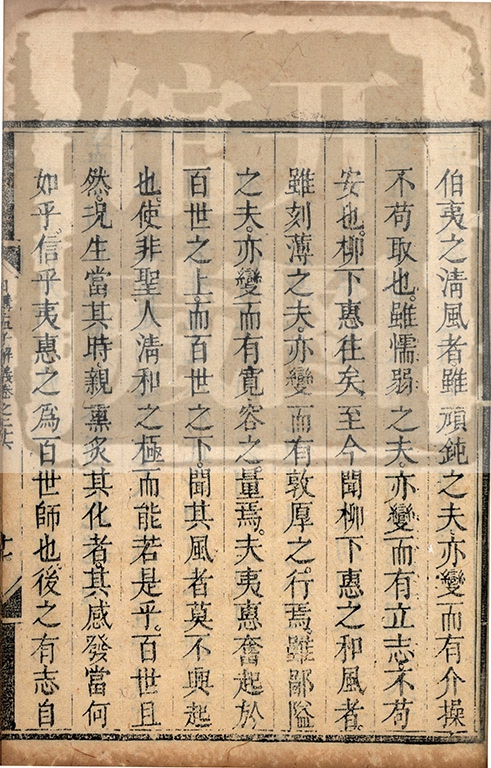 伯夷之清風者雖頑鈍之夫亦變而有介操
不苟取也雖懦弱之夫亦變而有立志不苟
安也柳下惠往矣至今聞柳下惠之和風者
雖刻薄之夫亦變而有敦厚之行焉雖鄙隘
之夫亦變而有寬容之量焉夫夷惠奮起於
百世之上而百世之下聞其風者莫不興起
也使非聖人清和之極而能若是乎百世且
然況生當其時親熏炙其化者其感發當何
如乎信乎夷惠之為百世師也後之有志自
日講孟子解義卷之二十六